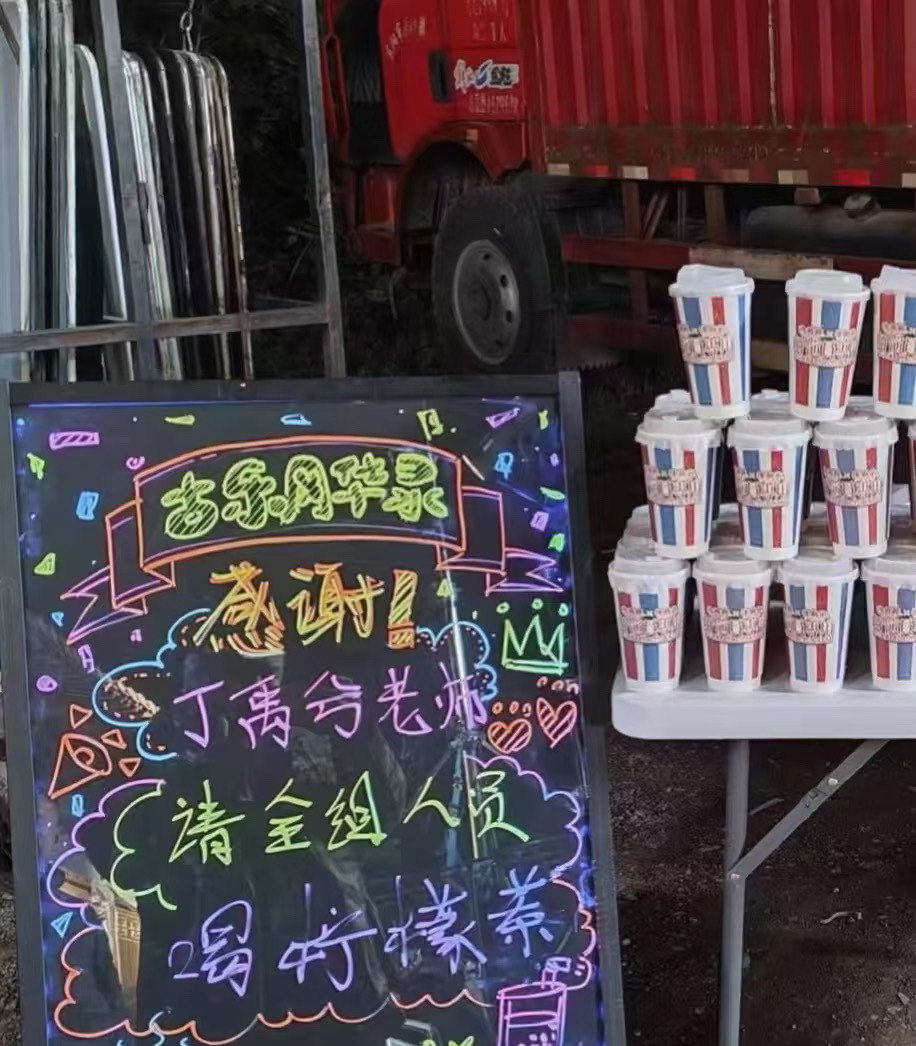 古乐风华录
感谢!
丁禹兮老师
请全组人员
喝柠檬茶